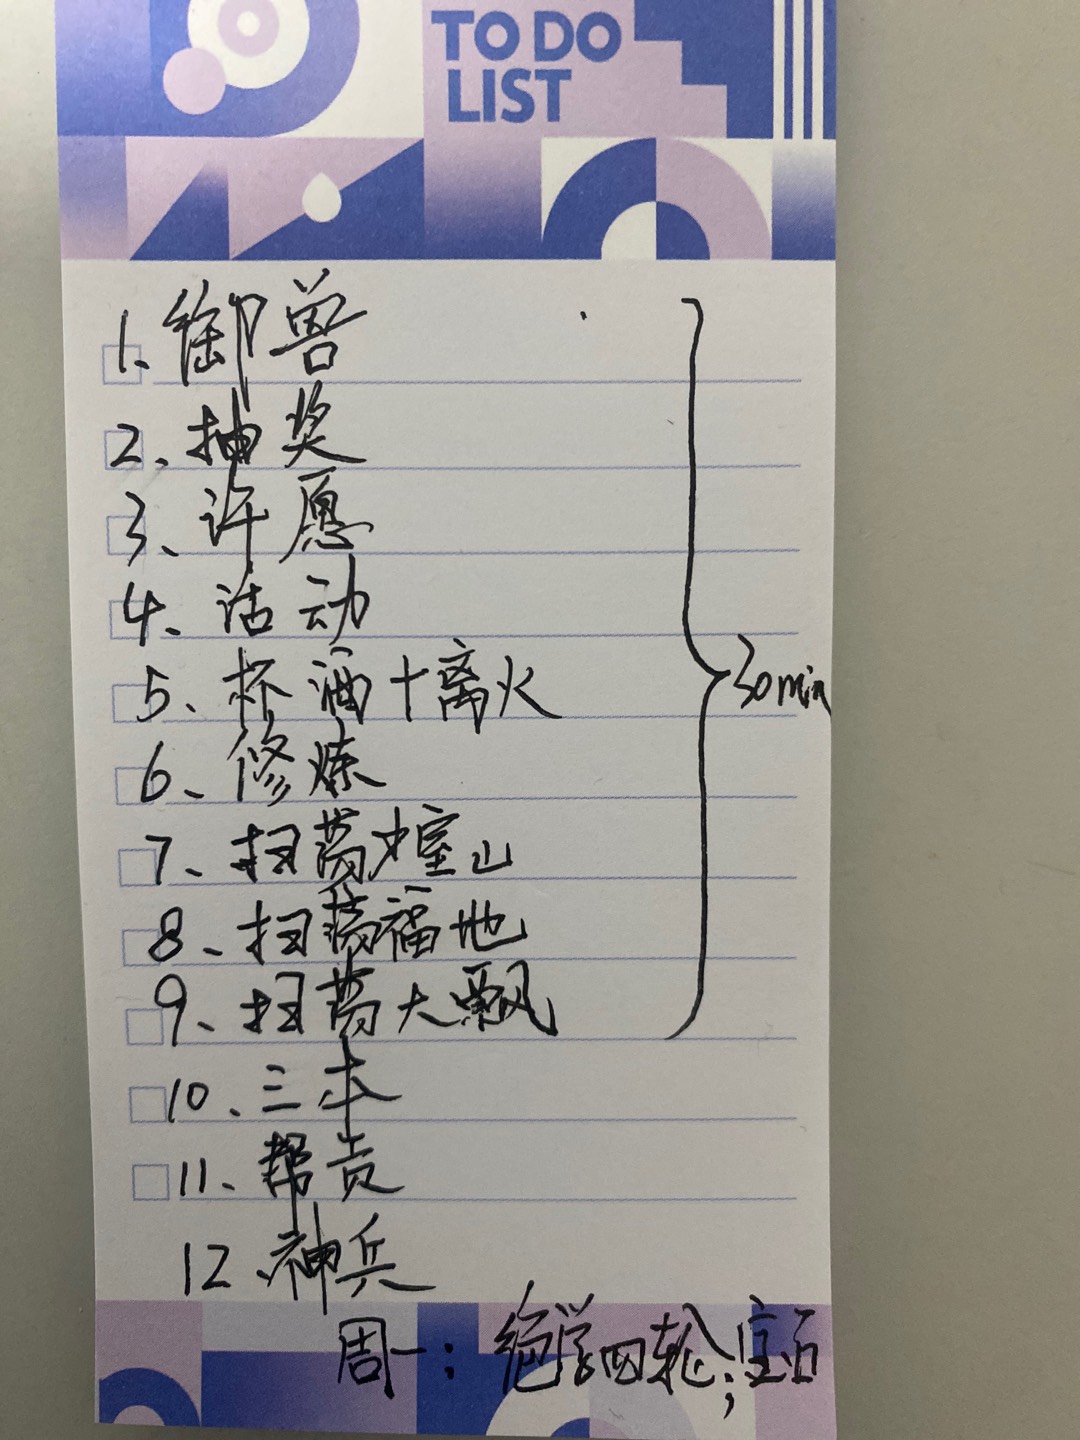 TO DO
LIST
1、御兽
2、抽奖
3、许愿
4、活动
5、杯酒+离火
6、修炼
7、扫荡少室山
8、扫荡福地
9、扫荡大飘
30min
10、三本
11、帮贡
12、神兵
周一：绝学四轮；